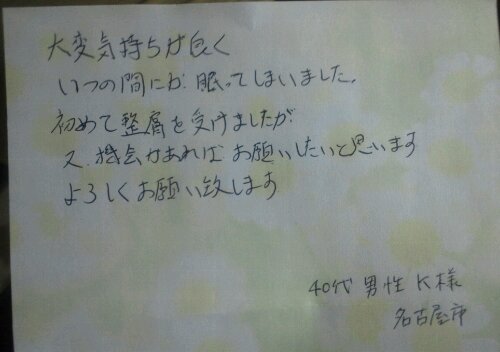 大変気持ちが良く
いつの間にか眠ってしまいました。
初めて整膚を受けましたが
又、機会があればお願いしたいと思います
よろしくお願い致します
40代男性 K様
名古屋市